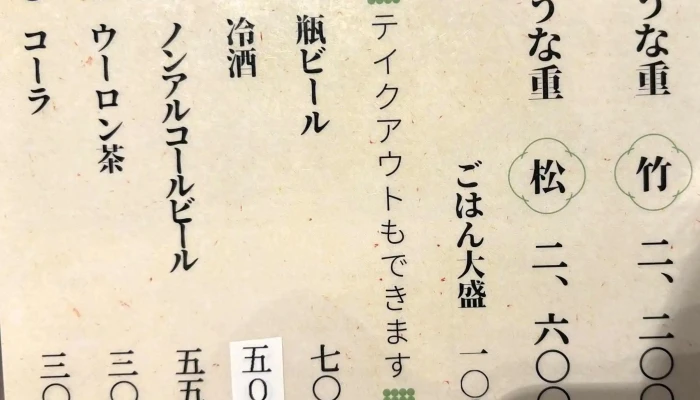 うな重 竹 二、二〇〇
うな重 松 二、六〇〇
ごはん大盛 一〇
テイクアウトもできます
瓶ビール 七〇
冷酒 五〇
ノンアルコールビール 五五
ウーロン茶 三〇
コーラ 三〇